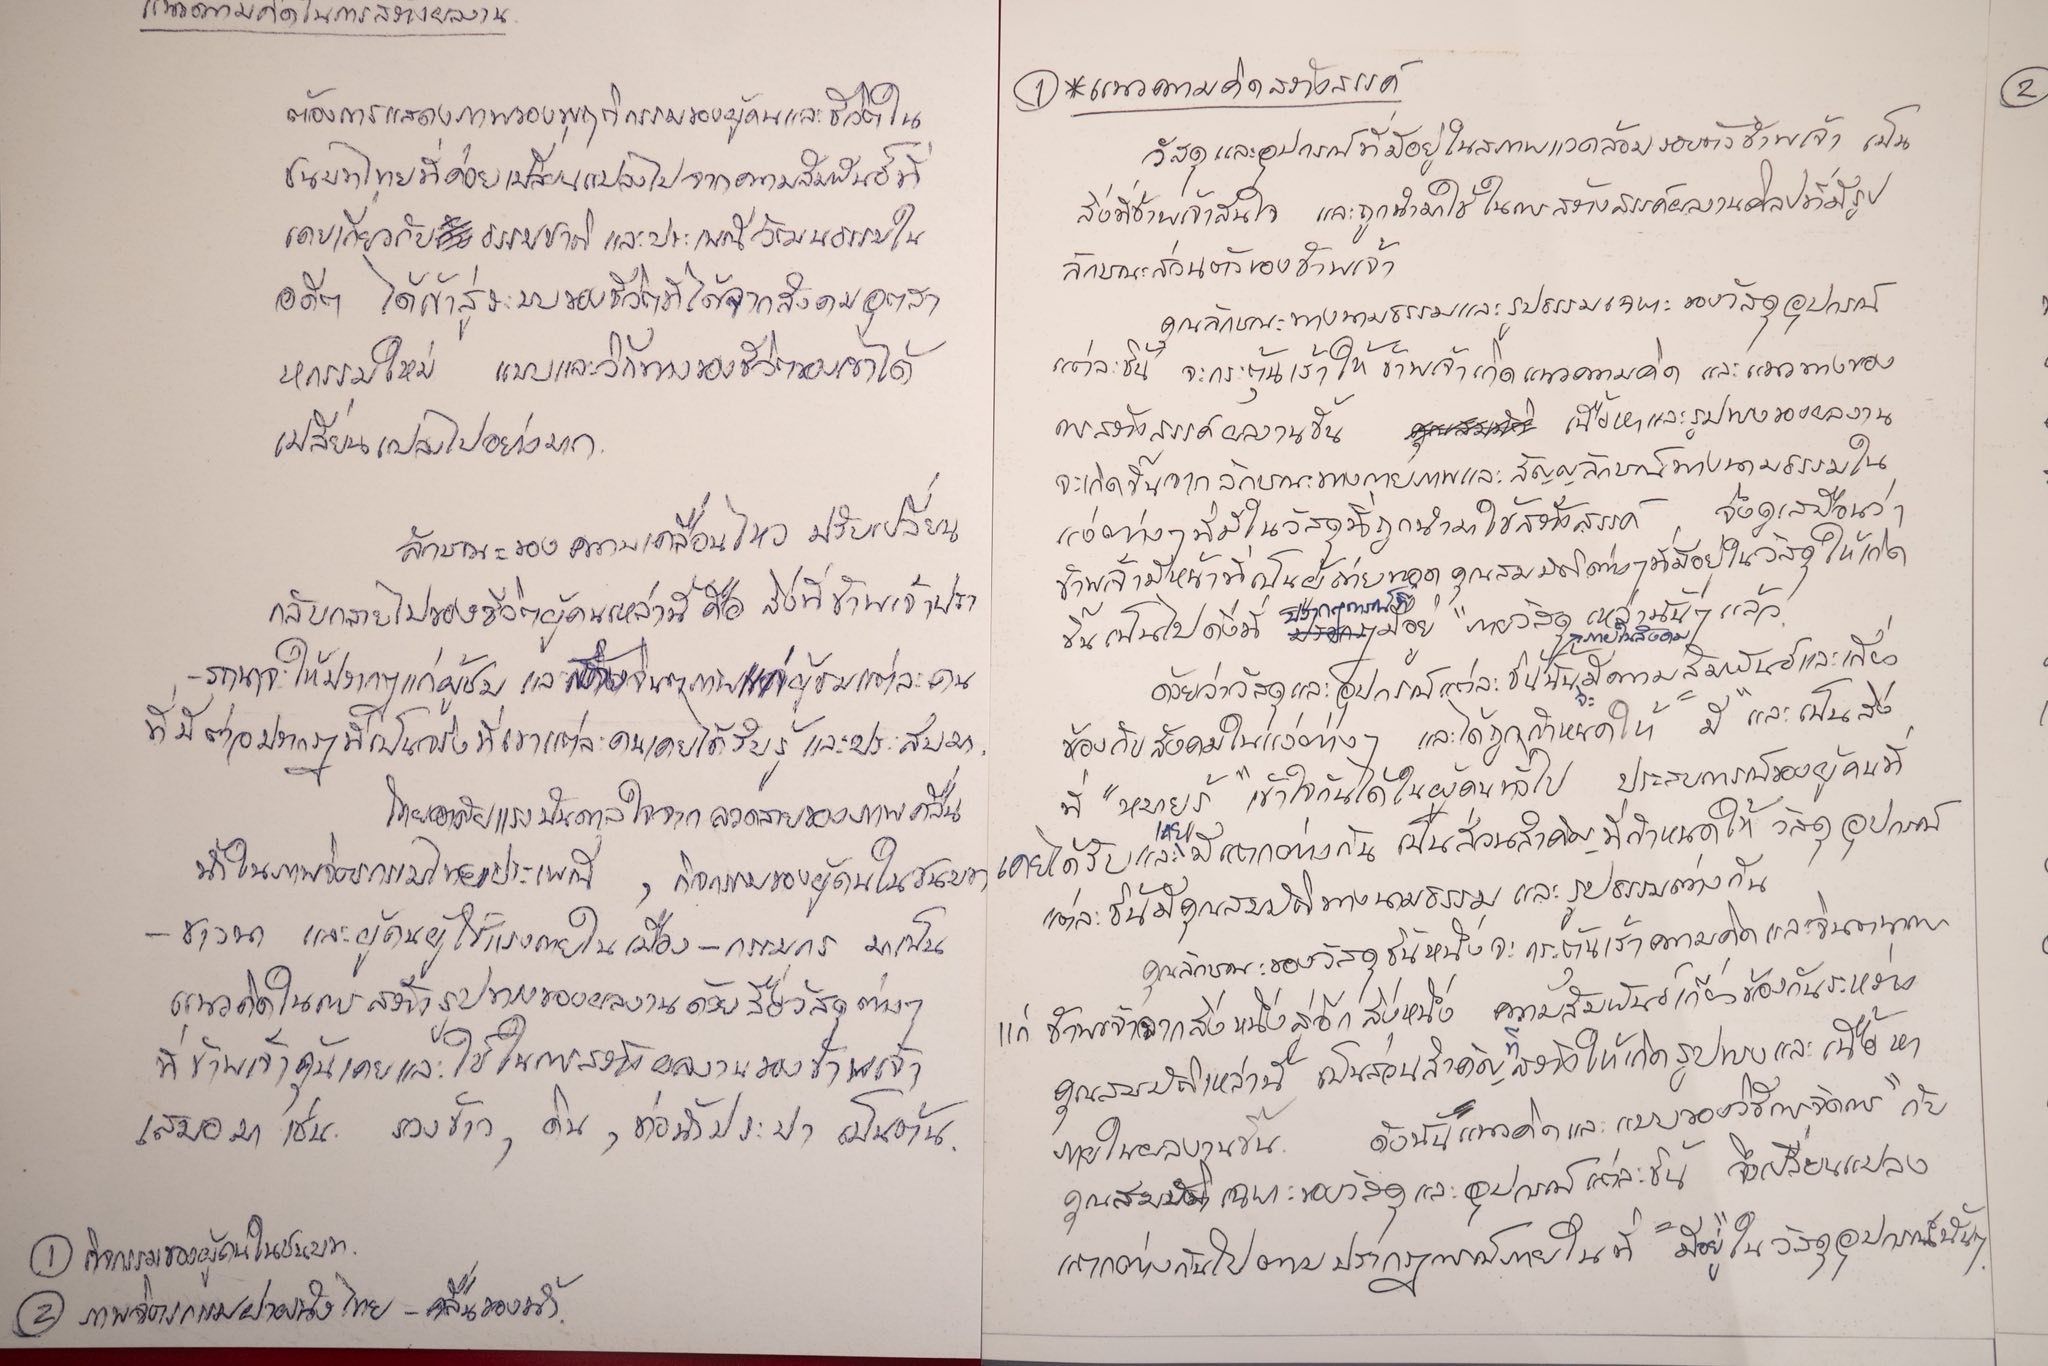 แนวความคิดในการสร้างผลงาน
ต้องการแสดงภาพของพฤติกรรมของผู้คนและชีวิตใน
ชนบทไทยที่ค่อยเปลี่ยนแปลงไปจากความสัมพันธ์ที่
เคยเกี่ยวกับ ธรรมชาติ และประเพณีวัฒนธรรมใน
อดีต ได้เข้าสู่ระบบของชีวิตที่ได้จากสังคมอุตสา
หกรรมใหม่ แบบและวิถีทางของชีวิตของเขาได้
เปลี่ยนแปลงไปอย่างมาก.
ลักษณะของความเคลื่อนไหว ปรับเปลี่ยน
กลับกลายไปของชีวิตผู้คนเหล่านี้ คือ สิ่งที่ข้าพเจ้าปรา
-รถนาจะให้ปรากฏแก่ผู้ชม และ จินตภาพแก่ผู้ชมแต่ละคน
ที่มีต่อปรากฏที่เป็นจริงที่เขาแต่ละคนเคยได้รับรู้ และประสบมา.
โดยอาศัยแรงบันดาลใจจากลวดลายของภาพคลื่น
น้ำในภาพจิตรกรรมไทยประเพณี , กิจกรรมของผู้คนในชนบท
- ชาวนา และผู้คนผู้ใช้แรงภายในเมือง - กรรมกร มาเป็น
แนวคิดในการสร้างรูปทรงของผลงานด้วยสื่อวัสดุต่างๆ
ที่ข้าพเจ้าคุ้นเคยและใช้ในการสร้างผลงานของข้าพเจ้า
เสมอมา เช่น. รวงข้าว, ดิน, ท่อน้ำประปา เป็นต้น.
① กิจกรรมของผู้คนในชนบท.
② ภาพจิตรกรรมฝาผนังไทย - คลื่นของน้ำ.
① *แนวความคิดสร้างสรรค์
วัสดุและอุปกรณ์ที่มีอยู่ในสภาพแวดล้อมรอบตัวข้าพเจ้า เป็น
สิ่งที่ข้าพเจ้าสนใจ และถูกนำมาใช้ในการสร้างสรรค์ผลงานศิลปที่มีรูป
ลักษณะส่วนตัวของข้าพเจ้า
คุณลักษณะทางนามธรรมและรูปธรรมเฉพาะของวัสดุอุปกรณ์
แต่ละชิ้น จะกระตุ้นเร้าให้ข้าพเจ้าเกิดแนวความคิด และแนวทางของ
การสร้างสรรค์ผลงานขึ้น เนื้อหาและรูปทรงของผลงาน
จะเกิดขึ้นจากลักษณะทางกายภาพและสัญญลักษณ์ทางนามธรรมใน
แง่ต่างๆที่มีในวัสดุที่ถูกนำมาใช้สร้างสรรค์ จึงดูเสมือนว่า
ข้าพเจ้ามีหน้าที่เป็นผู้ถ่ายทอดคุณสมบัติต่างๆที่มีอยู่ในวัสดุให้เกิด
ขึ้นเป็นไปดังที่ ปรากฏการณ์ มีอยู่ "ภายวัสดุเหล่านั้นๆแล้ว.
ด้วยว่าวัสดุและอุปกรณ์แต่ละชิ้นนั้นมีความสัมพันธ์และเกี่ยว
ภายในสังคม
ข้องกับสังคมในแง่ต่างๆ และได้ถูกกำหนดให้ "มี" และเป็นสิ่ง
ที่ "หมายรู้" เข้าใจกันได้ในผู้คนทั่วไป ประสบการณ์ของผู้คนที่
เคยได้รับและเคยมีแตกต่างกัน เป็นส่วนสำคัญที่กำหนดให้ วัสดุอุปกรณ์
แต่ละชิ้นมีคุณสมบัติทางนามธรรม และรูปธรรมต่างกัน
คุณลักษณะของวัสดุชิ้นหนึ่งจะกระตุ้นเร้าความคิดและจินตนาการ
แก่ข้าพเจ้าจากสิ่งหนึ่งสู่อีกสิ่งหนึ่ง ความสัมพันธ์เกี่ยวข้องกันระหว่าง
คุณสมบัติเหล่านี้ เป็นส่วนสำคัญที่สร้างให้เกิดรูปทรงและเนื้อหา
ภายในผลงานขึ้น. ดังนั้น"แนวคิดและแบบของวิธีการจัดการ" กับ
คุณสมบัติเฉพาะของวัสดุและอุปกรณ์แต่ละชิ้น จึงเปลี่ยนแปลง
แตกต่างกันไปตามปรากฏการณ์ภายในที่ "มีอยู่" ในวัสดุอุปกรณ์นั้นๆ.
②